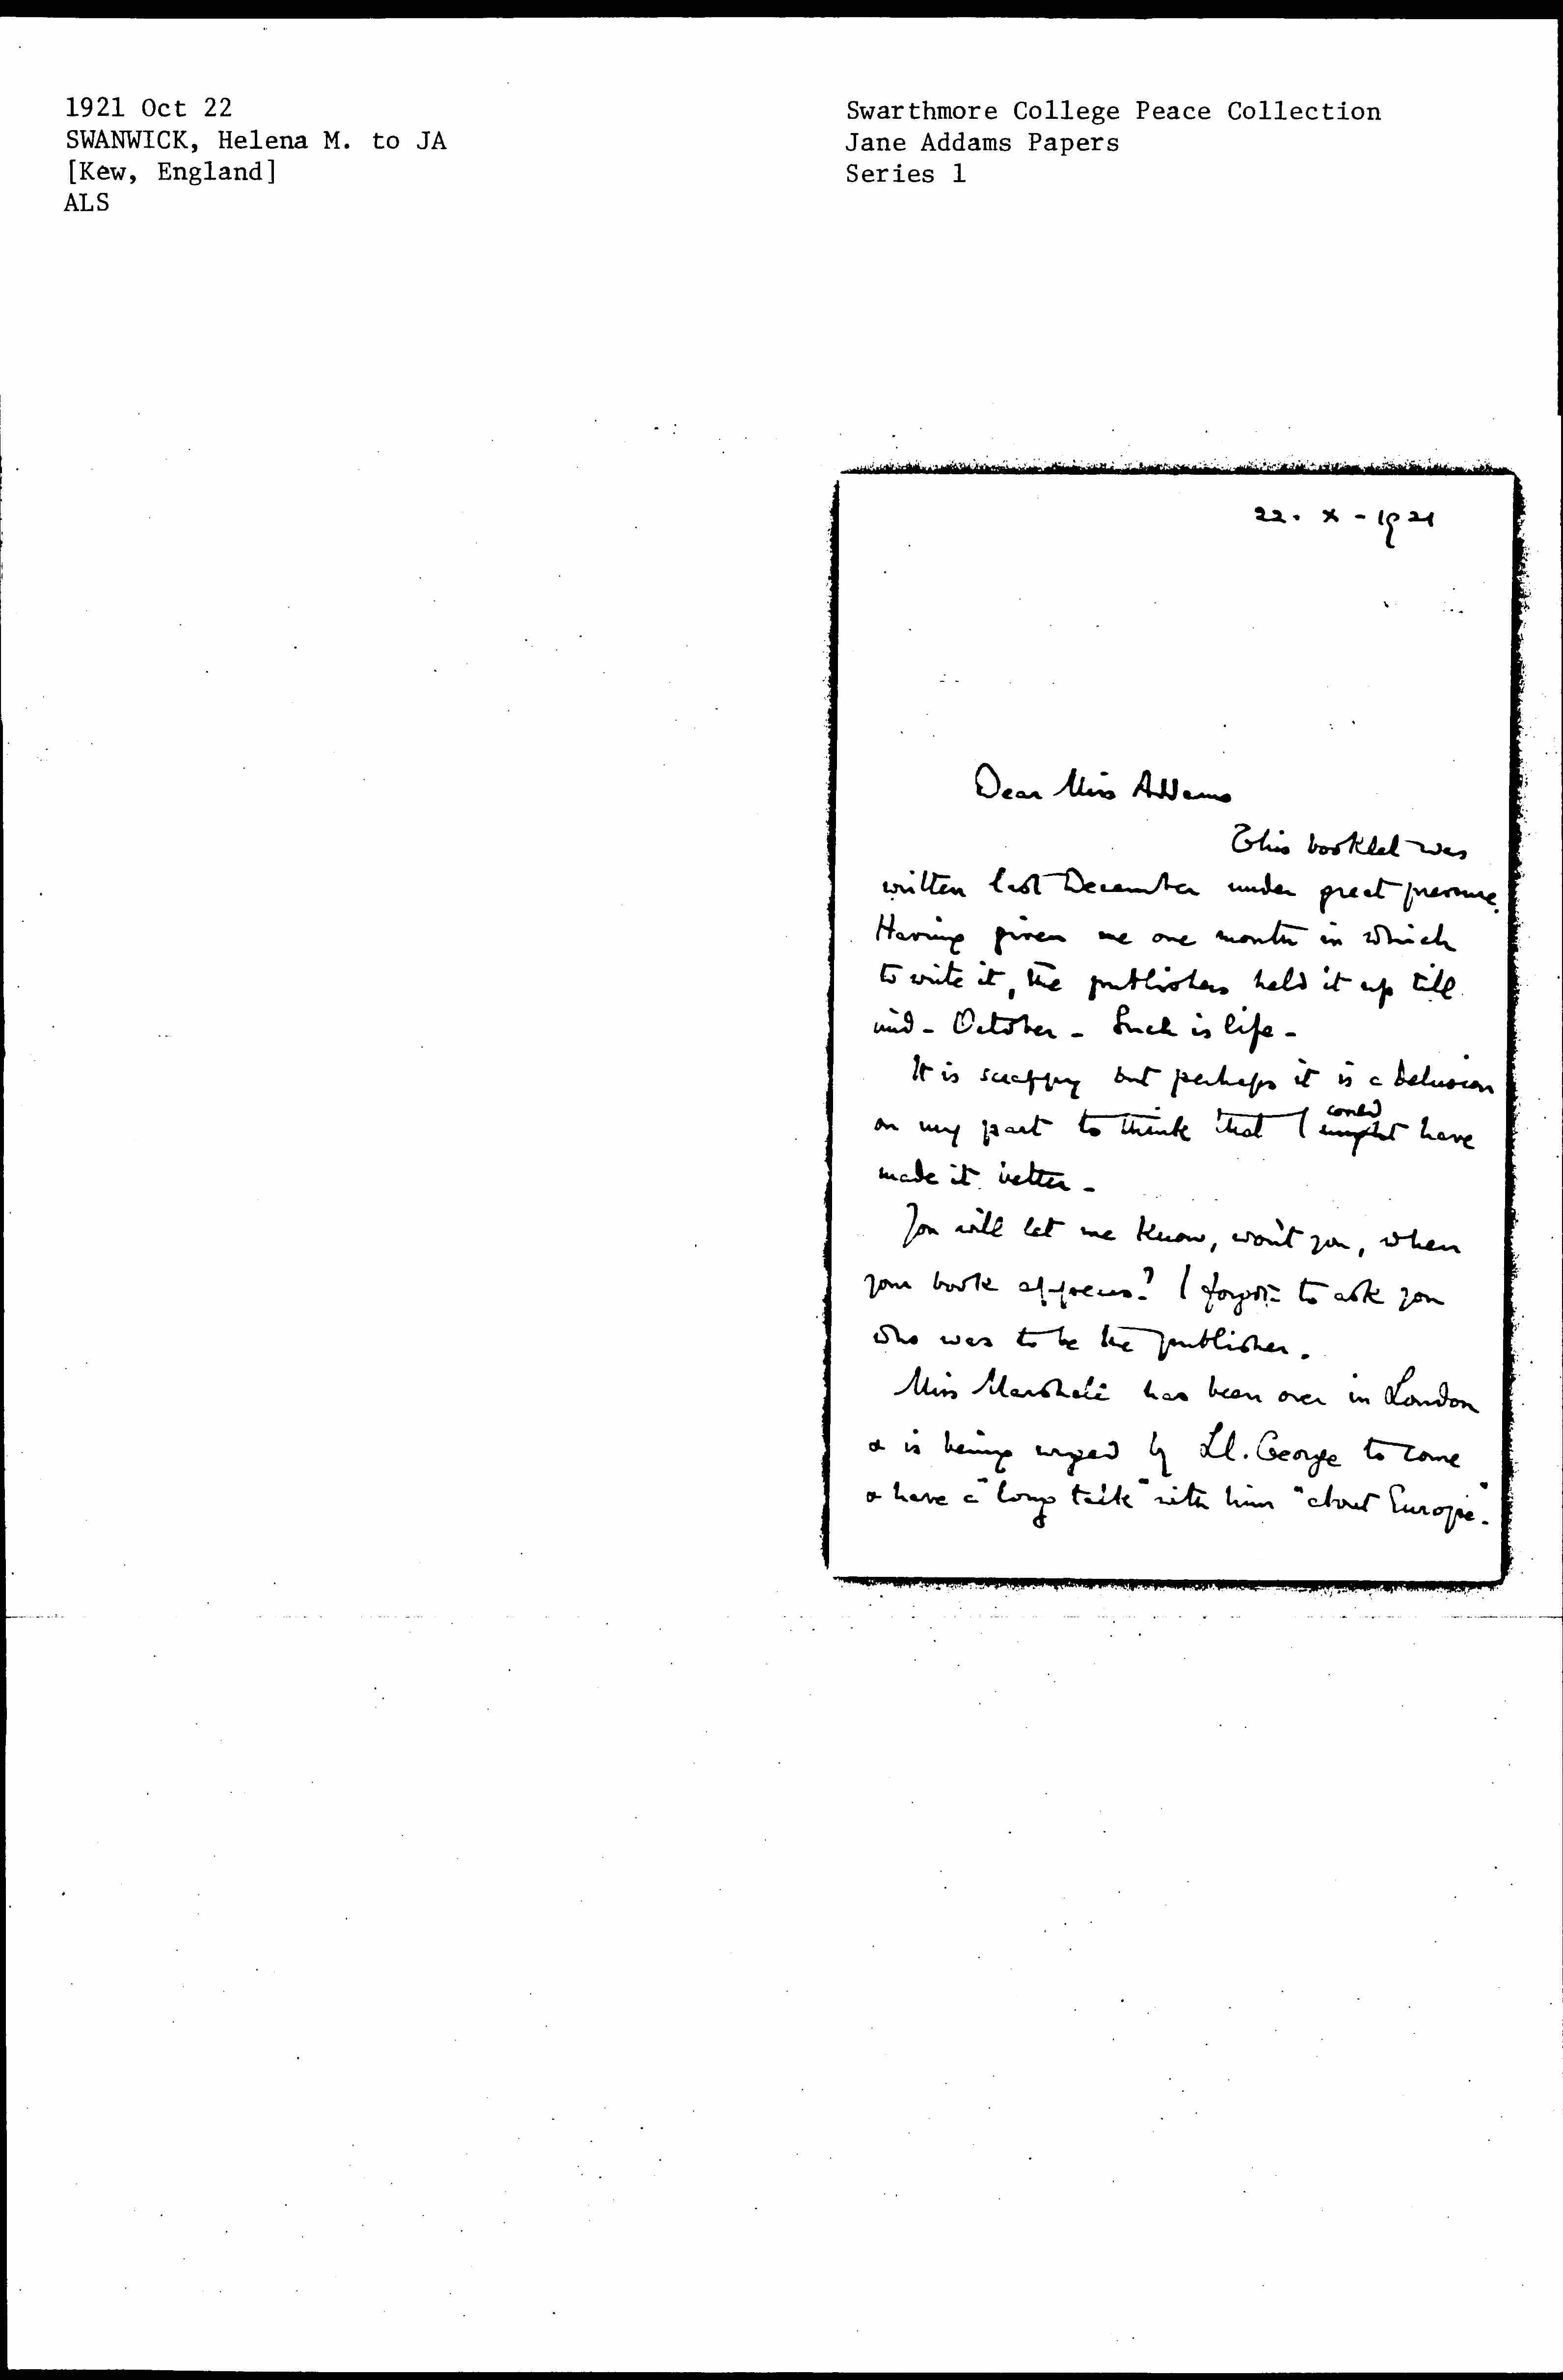 1921 Oct 22
SWANWICK, Helena M. to JA
[Kew, England]
ALS
Swarthmore College Peace Collection
Jane Addams Papers
Series 1
22. X - 1921
Dear Miss Addams
This booklet was
written last December under great pressure.
Having given me one month in which
to write it, the publishers held it up till
mid-October - Such is life -
It is scrappy but perhaps it is a delusion
on my part to think that I could might have
made it better -
You will let me know, won't you, when
your book appears? I forgot to ask you
who was to be the publisher.
Miss Marshall has been over in London
& is being urged by Ll. George to come
& have a "long talk" with him "about Europe".